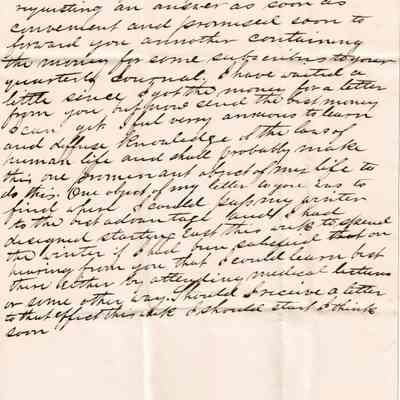 requesting an answer as soon as
convenient and promised soon to
forward you annother containing
the money for some subscribers to your
quarterly Journal, I have waited a
little since I got the money for a letter
from you but now send the best money
I can get I feel verry anxious to learn
and diffuse Knowledge of the laws of
human life and shall probably make
this one prominant object of my life to
do this. One object of my letter to you was to
find where I could pass my winter
to the best advantage and I had
designed starting East this week to spend
the winter if I had been satisfied that on
hearing from you that I could learn best
there either by attending medical lectures
or some other way. Should I receive a letter
to that effect this week I should start I think
soon